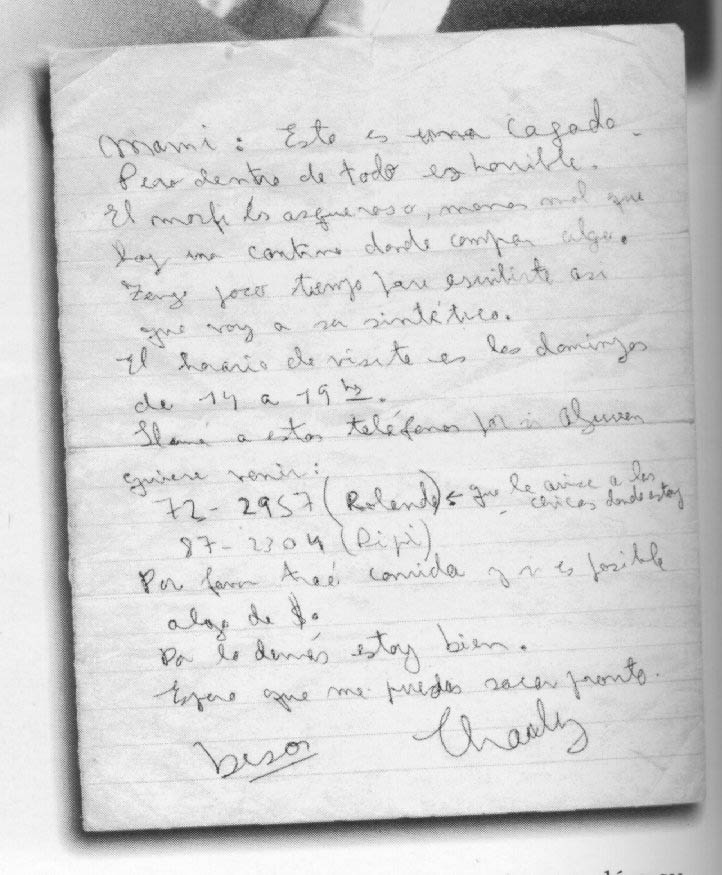 Mami: Esto es una cagada.
Pero dentro de todo es horrible.
El morfi es asqueroso, menos mal que
hay una cantina donde comprar algo.
Tengo poco tiempo para escribirte así
que voy a ser sintético.
El horario de visita es los domingos
de 14 a 19 hs.
Llamá a estos teléfonos por si alguien
quiere venir:
72-2957 (Rolando) ← que le avise a los
chicos donde estoy
87-2304 (Pipi)
Por favor traé comida y si es posible
algo de $.
Por lo demás estoy bien.
Espero que me puedas sacar pronto.
besos Charly